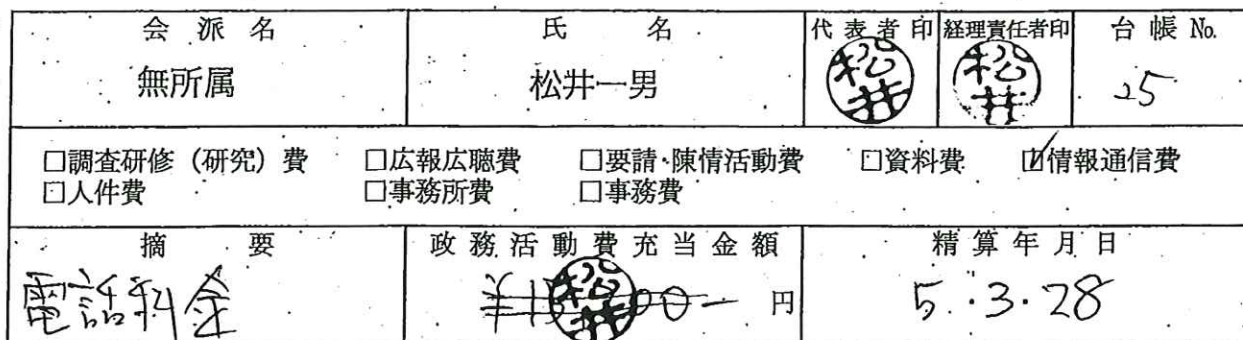 会派名 氏名 代表者印 経理責任者印 台帳No.
無所属 松井一男 松井 松井 25
□調査研修（研究）費 □広報広聴費 □要請・陳情活動費 □資料費 ☑情報通信費
□人件費 □事務所費 □事務費
摘要 政務活動費充当金額 精算年月日
電話料金 松井 円 5.3.28